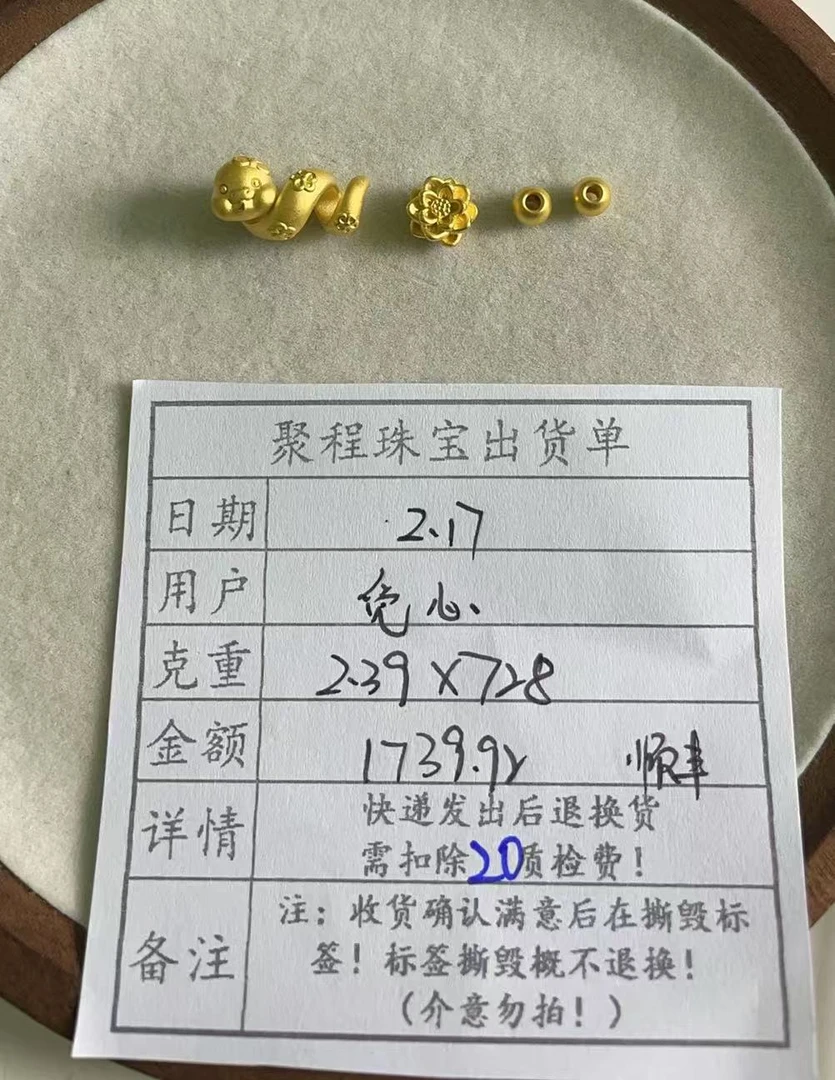 聚程珠宝出货单
日期 2.17
用户 觉心
克重 2.39×728
金额 1739.92 顺丰
详情 快递发出后退换货
需扣除20质检费!
备注 注:收货确认满意后在撕毁标
签!标签撕毁概不退换!
(介意勿拍!)